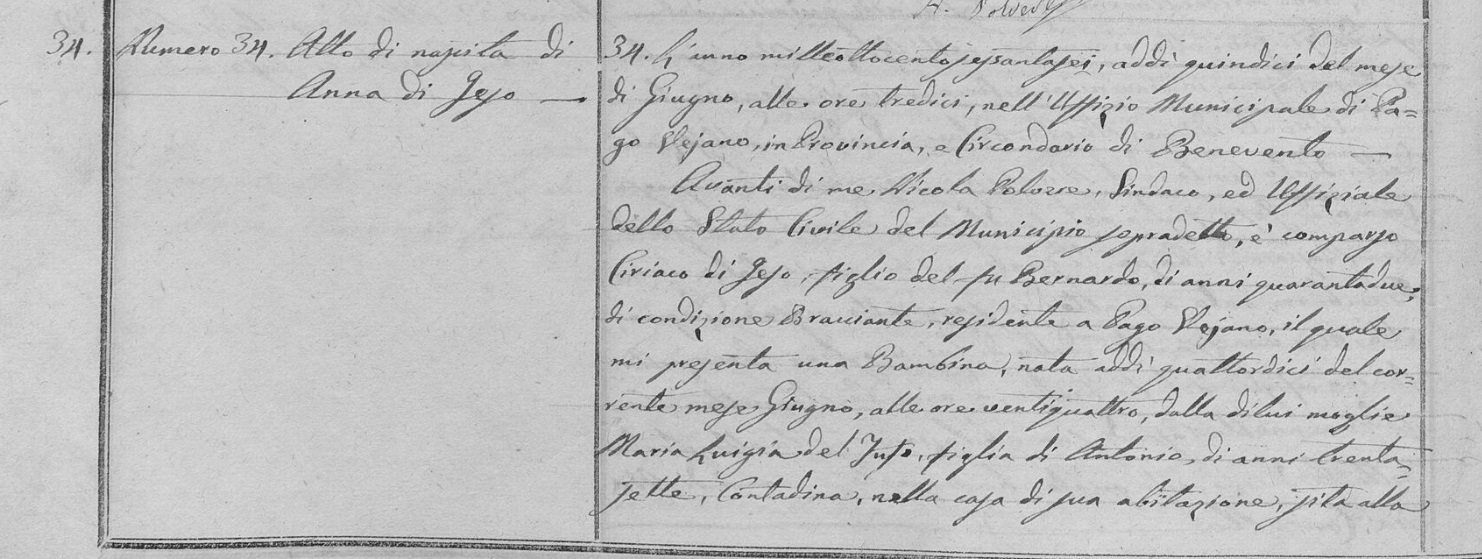 N. Polvere
34.
Numero 34. Atto di nascita di
Anna di Jeso —
34. L'anno milleottocentosessantasei, addì quindici del mese
di Giugno, alle ore tredici, nell'Uffizio Municipale di Pa=
go Vejano, in Provincia, e Circondario di Benevento —
Avanti di me Nicola Polvere, Sindaco, ed Uffiziale
dello Stato Civile del Municipio sopradetto, è comparso
Ciriaco di Jeso, figlio del fu Bernardo, di anni quarantadue,
di condizione Bracciante, residente a Pago Vejano, il quale
mi presenta una Bambina, nata addì quattordici del cor=
rente mese Giugno, alle ore ventiquattro, dalla di lui moglie
Maria Luigia del , figlia di Antonio, di anni trenta=
sette, Contadina, nella casa di sua abitazione, sita alla